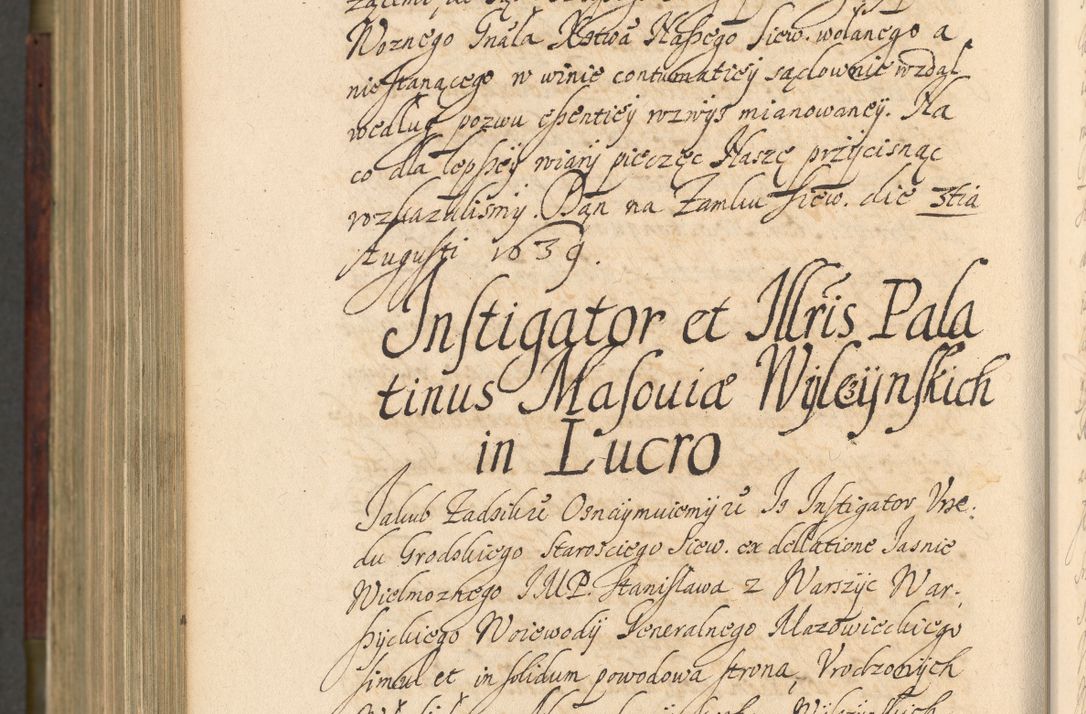 Woznego Gnãla Xstwa Naßego Siew. wołanego a
nie stanącego w winie contumatiey sądownie wzdał
według pozwu eßentiey wzwyż mianowaney. Na
co dla lepßey wiary pieczęc Naszę przycisnąc
rozkazalismy. Dan na Zamku Siew. die 3tia
Augusti 1639.
Instigator et Illris Pala
tinus Masouiæ Wyleżynskich
in Lucro
Jakub Zadzik etc Oznaymuiemy że Is Instigator Vrze:
du Grodskiego Starosciego Siew. ex dellatione Jasnie
Wielmoznego JMP. Stanisława z Warszyc War:
ßyckiego Woiewody Generalnego Mazowieckiego
simul et in solidum powodowa strona, Vrodzonych